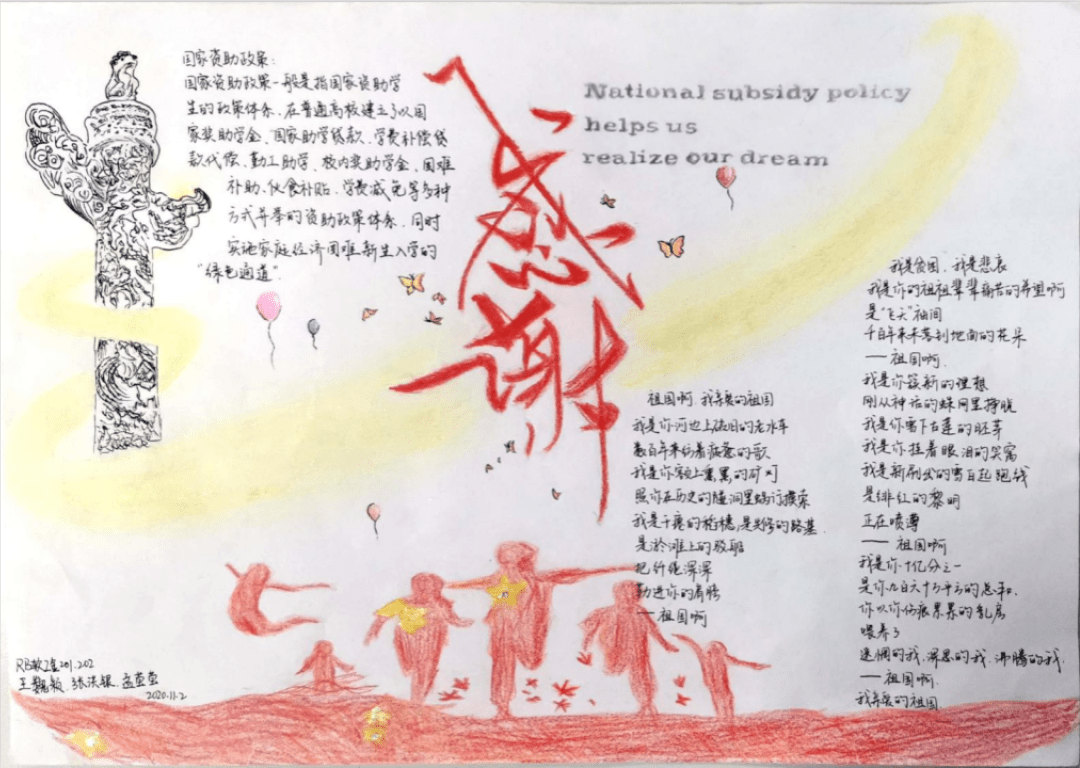 国家资助政策：
国家资助政策一般是指国家资助学
生的政策体系，在普通高校建立了以国
家奖助学金、国家助学贷款、学费补偿贷
款代偿、勤工助学、校内奖助学金、困难
补助、伙食补贴、学费减免等多种
方式并举的资助政策体系，同时
实施家庭经济困难新生入学的
"绿色通道".
感谢
National subsidy policy
helps us
realize our dream
祖国啊,我亲爱的祖国
我是你河边上破旧的老水车
数百年来纺着疲惫的歌
我是你额上熏黑的矿灯
照你在历史的隧洞里蜗行摸索
我是干瘪的稻穗,是失修的路基.
是淤滩上的驳船
把纤绳深深
勒进你的肩膊
—祖国啊
我是贫困，我是悲哀
我是你的祖祖辈辈痛苦的希望啊
是"飞天"袖间
千百年来未落到地面的花朵
—祖国啊.
我是你簇新的理想
刚从神话的蛛网里挣脱
我是你雪下古莲的胚芽
我是你挂着眼泪的笑窝
我是新刷出的雪白起跑线
是绯红的黎明
正在喷薄
— 祖国啊
我是你十亿分之一
是你九百六十万平方的总和.
你以你伤痕累累的乳房
喂养了
迷惘的我,深思的我,沸腾的我.
—祖国啊.
我亲爱的祖国
RB软工Z201.202
王魏颖.张洪银.孟莹莹
2020.11.2